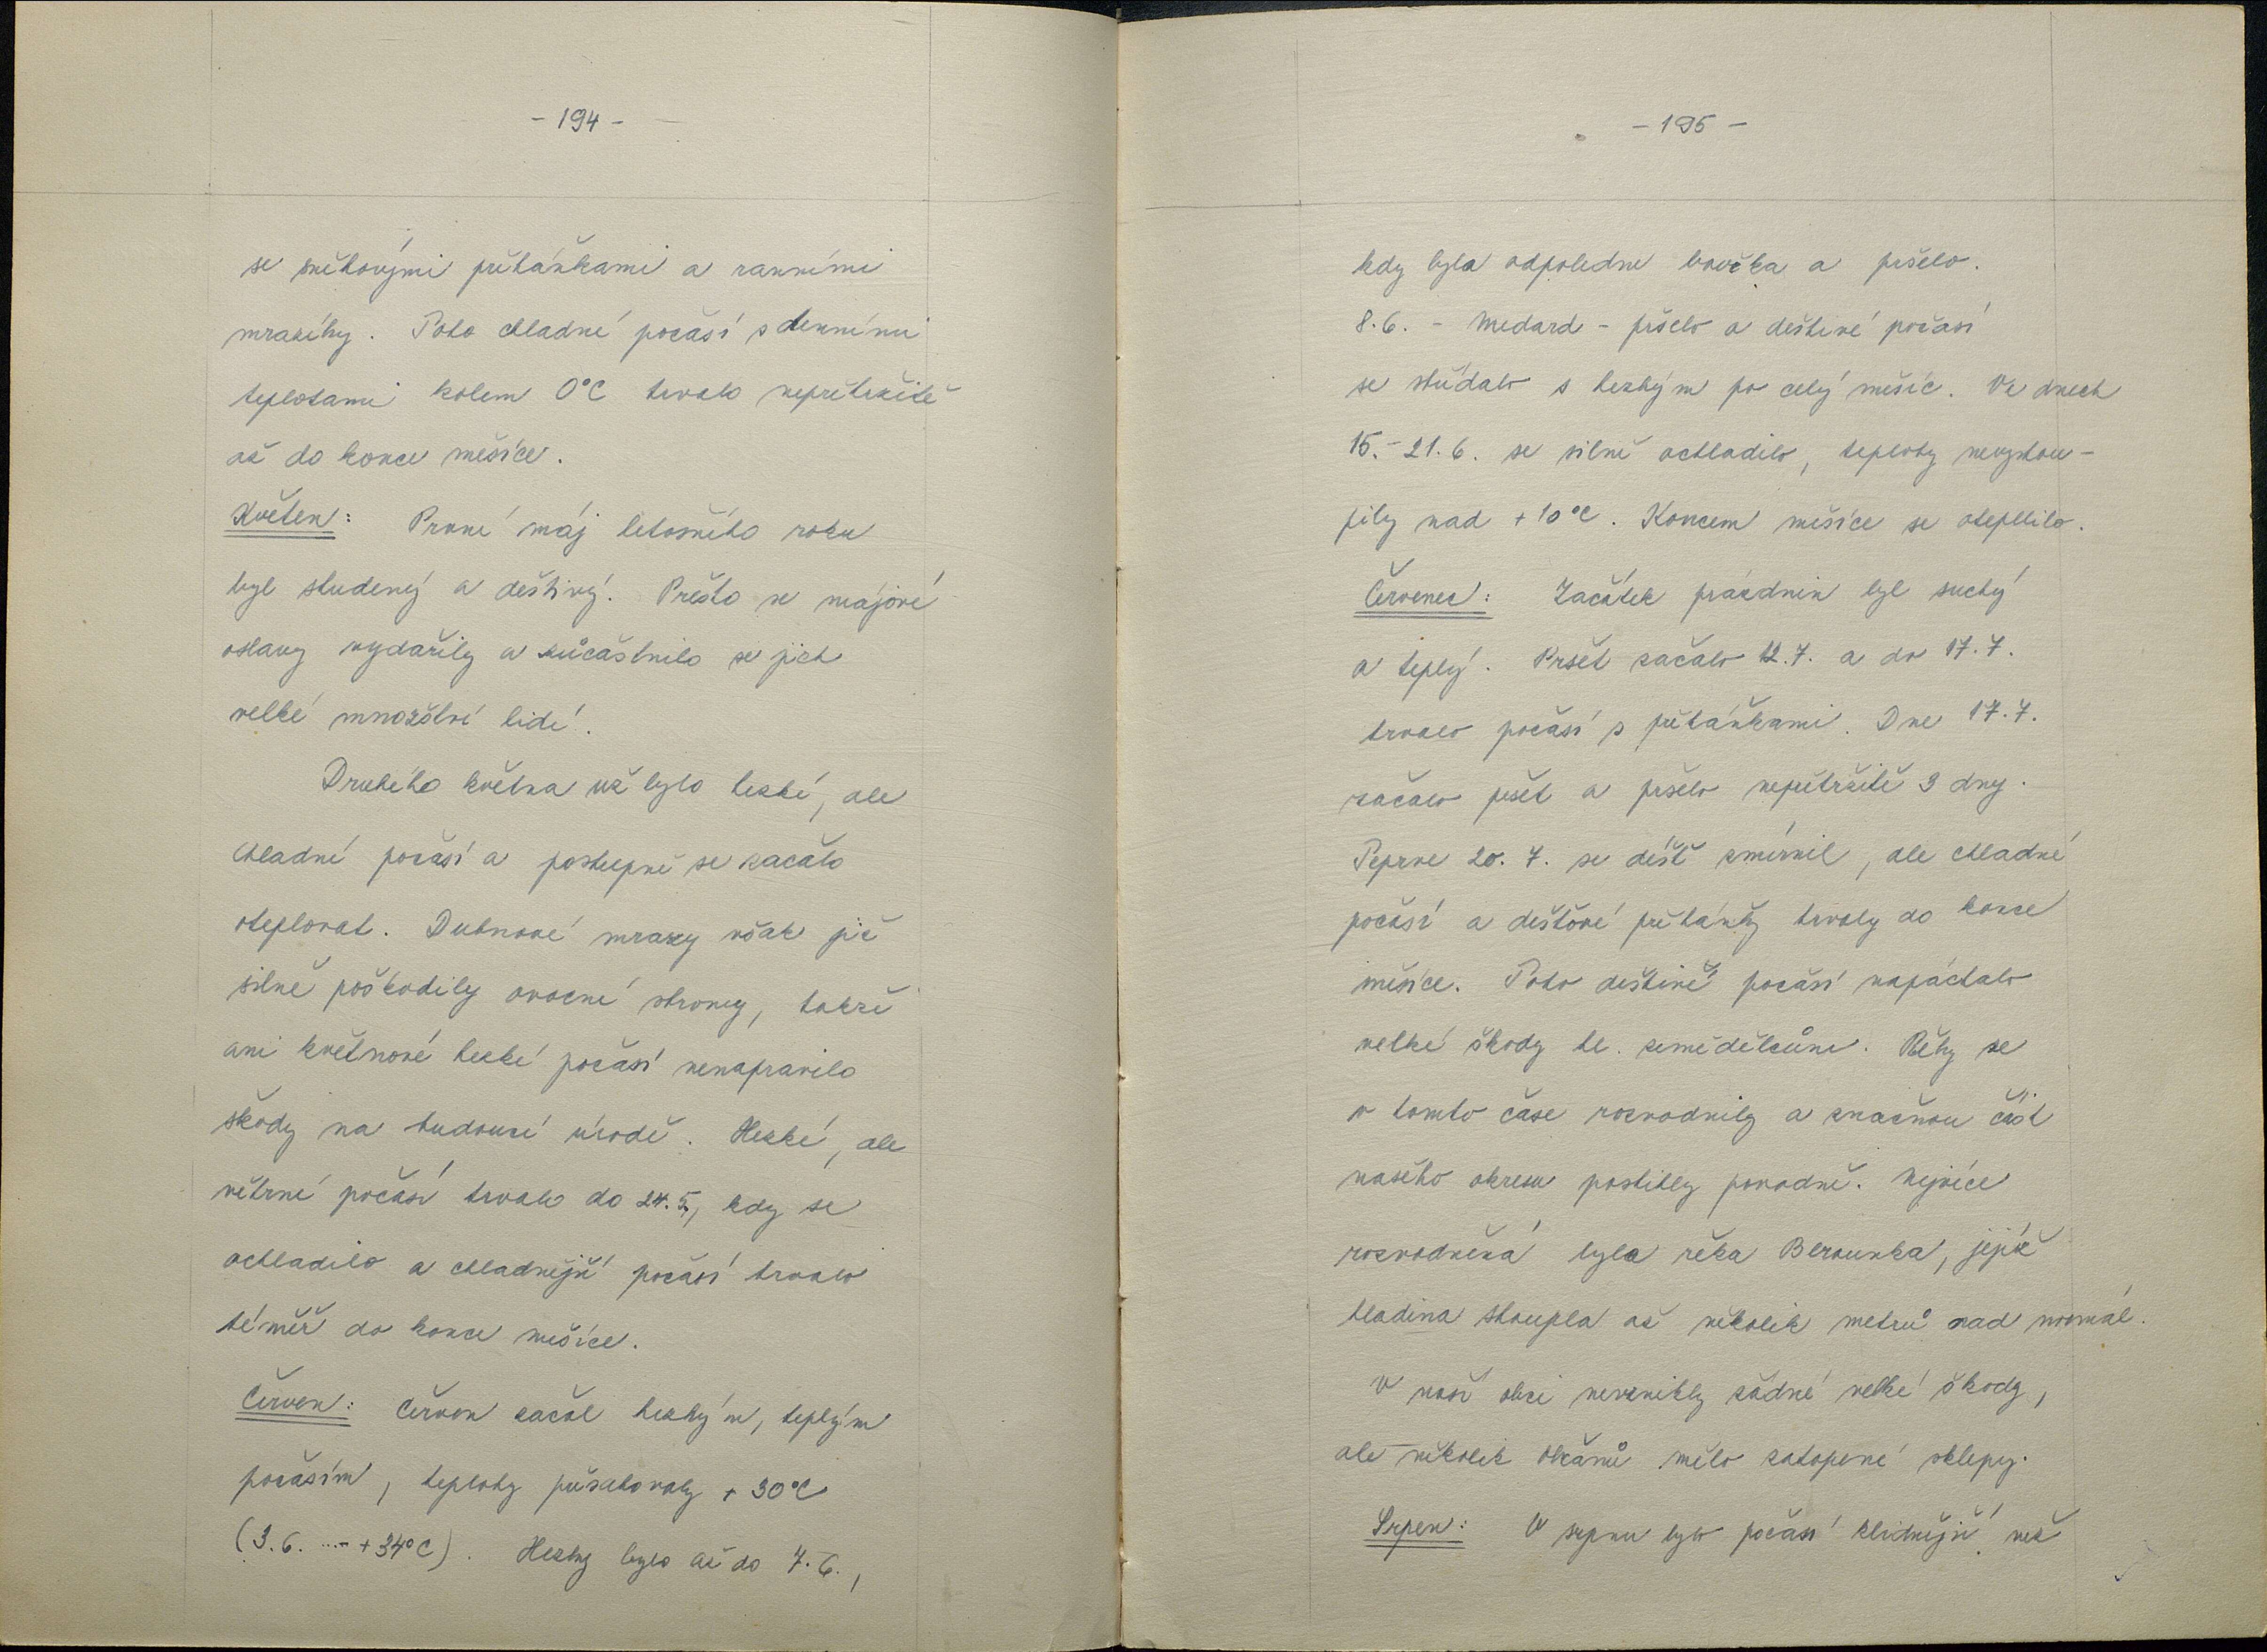 - 194 -
se sněhovými přeháňkami a ranními
mrazíky. Toto chladné počasí s denními
teplotami kolem 0°C trvalo nepřetržitě
až do konce měsíce.
Květen: První máj letošního roku
byl studený a deštivý. Přesto se májové
oslavy vydařily a zúčastnilo se jich
velké množství lidí.
Druhého května už bylo hezké, ale
chladné počasí a postupně se začalo
oteplovat. Dubnové mrazy však již
silně poškodily ovocné stromy, takže
ani květnové hezké počasí nenapravilo
škody na budoucí úrodě. Hezké, ale
větrné počasí trvalo do 24.5, kdy se
ochladilo a chladnější počasí trvalo
téměř do konce měsíce.
Červen: Červen začal hezkým, teplým
počasím, teploty přesahovaly + 30°C
(3.6. .... +34°C). Hezky bylo až do 7.6.,
- 195 -
kdy byla odpoledne bouřka a pršelo.
8.6. - Medard - pršelo a deštivé počasí
se střídalo s hezkým po celý měsíc. Ve dnech
15.-21.6. se silně ochladilo, teploty nevystou-
pily nad +10°C. Koncem měsíce se oteplilo.
Červenec: Začátek prázdnin byl suchý
a teplý. Pršet začalo 12.7. a do 17.7.
trvalo počasí s přeháňkami. Dne 17.7.
začalo pršet a pršelo nepřetržitě 3 dny.
Teprve 20.7. se déšť zmírnil, ale chladné
počasí a dešťové přeháňky trvaly do konce
měsíce. Toto deštivé počasí napáchalo
velké škody hl. zemědělcům. Řeky se
v tomto čase rozvodnily a značnou část
našeho okresu postihly povodně. Nejvíce
rozvodněná byla řeka Berounka, jejíž
hladina stoupla až několik metrů nad normál.
V naší obci nevznikly žádné velké škody,
ale několik občanů mělo zatopené sklepy.
Srpen: V srpnu bylo počasí klidnější než